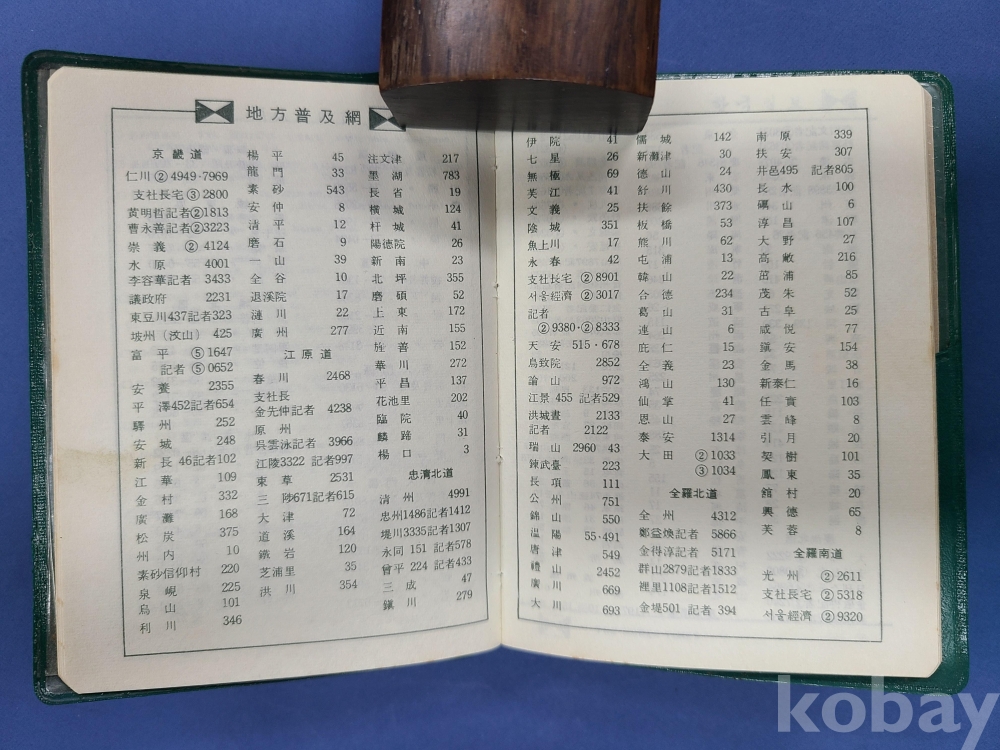 地方普及網
京畿道
仁川 ② 4949·7969
支社長宅 ③ 2800
黃明哲記者②1813
曹永善記者②3223
崇義 ② 4124
水原 4001
李容華記者 3433
議政府 2231
東豆川437記者323
坡州 (汶山) 425
富平 ⑤ 1647
記者 ⑤ 0652
安養 2355
平澤452記者654
驛州 252
安城 248
新長 46記者102
江華 109
金村 332
廣灘 168
松炭 375
州内 10
素砂信仰村 220
泉峴 225
烏山 101
利川 346
楊平 45
龍門 33
素砂 543
安仲 8
清平 12
磨石 9
一山 39
全谷 10
退溪院 17
漣川 22
廣州 277
江原道
春川 2468
支社長
金先仲記者 4238
原州
吳雲泳記者 3966
江陵3322 記者997
東草 2531
三陟671記者615
大津 72
道溪 164
鐵岩 120
芝浦里 35
洪川 354
注文津 217
墨湖 783
長省 19
橫城 124
杆城 41
陽德院 26
新南 23
北坪 355
磨磧 52
上東 172
近南 155
旌善 152
華川 272
平昌 137
花池里 202
臨院 40
麟蹄 31
楊口 3
忠清北道
清州 4991
忠州1486記者1412
堤川3335記者1307
永同 151 記者578
曾平 224 記者433
三成 47
鎭川 279
伊院 41
七星 26
無極 69
芙江 41
文義 25
陰城 351
魚上川 17
永春 42
支社長宅 ② 8901
서울經濟 ② 3017
記者
② 9380·② 8333
天安 515·678
鳥致院 2852
論山 972
江景 455 記者529
洪城 2133
記者 2122
瑞山 2960 43
鍊武臺 223
長項 111
公州 751
錦山 550
溫陽 55·491
唐津 549
禮山 2452
廣川 669
大川 693
儒城 142
新灘津 30
德山 24
舒川 430
扶餘 373
板橋 53
熊川 62
屯浦 13
韓山 22
合德 234
葛山 31
連山 6
庇仁 15
全義 23
鴻山 130
仙掌 41
恩山 27
泰安 1314
大田 ② 1033
③ 1034
全羅北道
全州 4312
鄭益煥記者 5866
金得淳記者 5171
群山2879記者1833
裡里1108記者1512
金堤501 記者 394
南原 339
扶安 307
井邑495 記者805
長水 100
礪山 6
淳昌 107
大野 27
高敞 216
茁浦 85
茂朱 52
古阜 25
咸悅 77
鎭安 154
金馬 38
新泰仁 16
任實 103
雲峰 8
引月 20
契樹 101
鳳東 35
館村 20
興德 65
芙蓉 8
全羅南道
光州 ② 2611
支社長宅 ② 5318
서울經濟 ② 9320
kobay